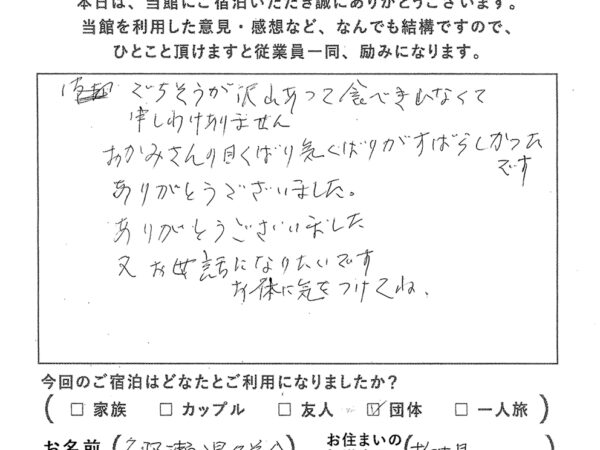 本日は、当館にご宿泊いただき誠にありがとうございます。
当館を利用した意見・感想など、なんでも結構ですので、
ひとこと頂けますと従業員一同、励みになります。
ごちそうが沢山あって食べきれなくて
申しわけありません
おかみさんの目くばり気くばりがすばらしかった
です
ありがとうございました。
ありがとうございました
又お世話になりたいです
お体に気をつけてね、
今回のご宿泊はどなたとご利用になりましたか?
( □ 家族 □ カップル □ 友人 ☑ 団体 □ 一人旅 )
お名前 ( お住まいの (